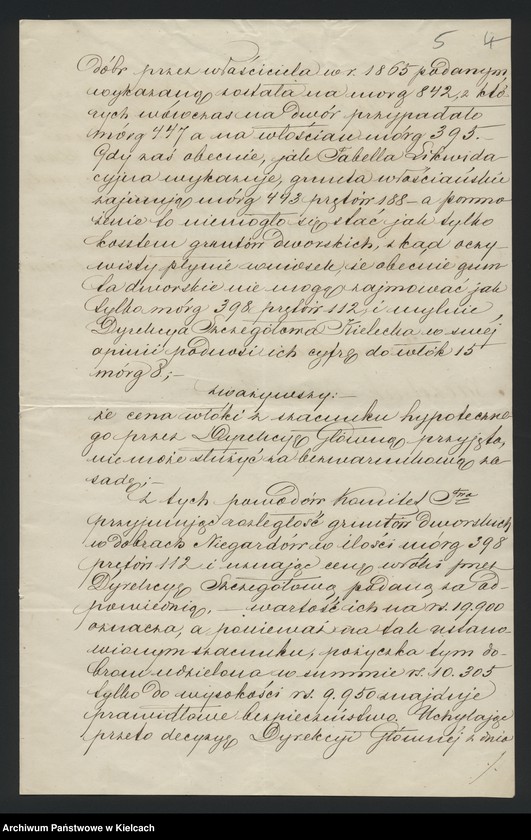 5 4
dóbr przez właściciela w r. 1865 podanym
wykazaną została na morg 842, z któ-
rych wówczas na dwór przypadało
morg 447 a na włościan morg 395.—
Gdy zaś obecnie, jak Tabella Likwida-
cyjna wykazuje, grunta włościańskie
zajmują morg 443 prętów 188 – a pomno-
żenie to niemogło się stać jak tylko
kosztem gruntów dworskich, zkąd oczy-
wisty płynie wniosek, że obecnie grun-
ta dworskie nie mogą zajmować jak
tylko mórg 398 prętów 112, i mylnie
Dyrekcya Szczegółowa Kielecka w swej
opinii podnosi ich cyfrę do włók 15
morg 8;–
zważywszy:–
że cena włóki z szacunku hypoteczne-
go przez Dyrekcyę Główną przyjęta,
nie może służyć za bezwarunkową za-
sadę;–
Z tych powodów Komitet
przyjmując rozległość gruntów dworskich
w dobrach Niegardów w ilości mórg 398
prętów 112 i uznając cenę włóki przez
Dyrekcyę Szczegółową podaną za od-
powiednią, — wartość ich na rs. 19.900
oznacza, a ponieważ na tak ustano-
wionym szacunku, pożyczka tym do-
brom udzielona w summie rs. 10.305
tylko do wysokości rs. 9.950 znajduje
prawidłowe bezpieczeństwo. Uchylając
przeto decyzyę Dyrekcyi Głównej z dnia
./.
Archiwum Państwowe w Kielcach